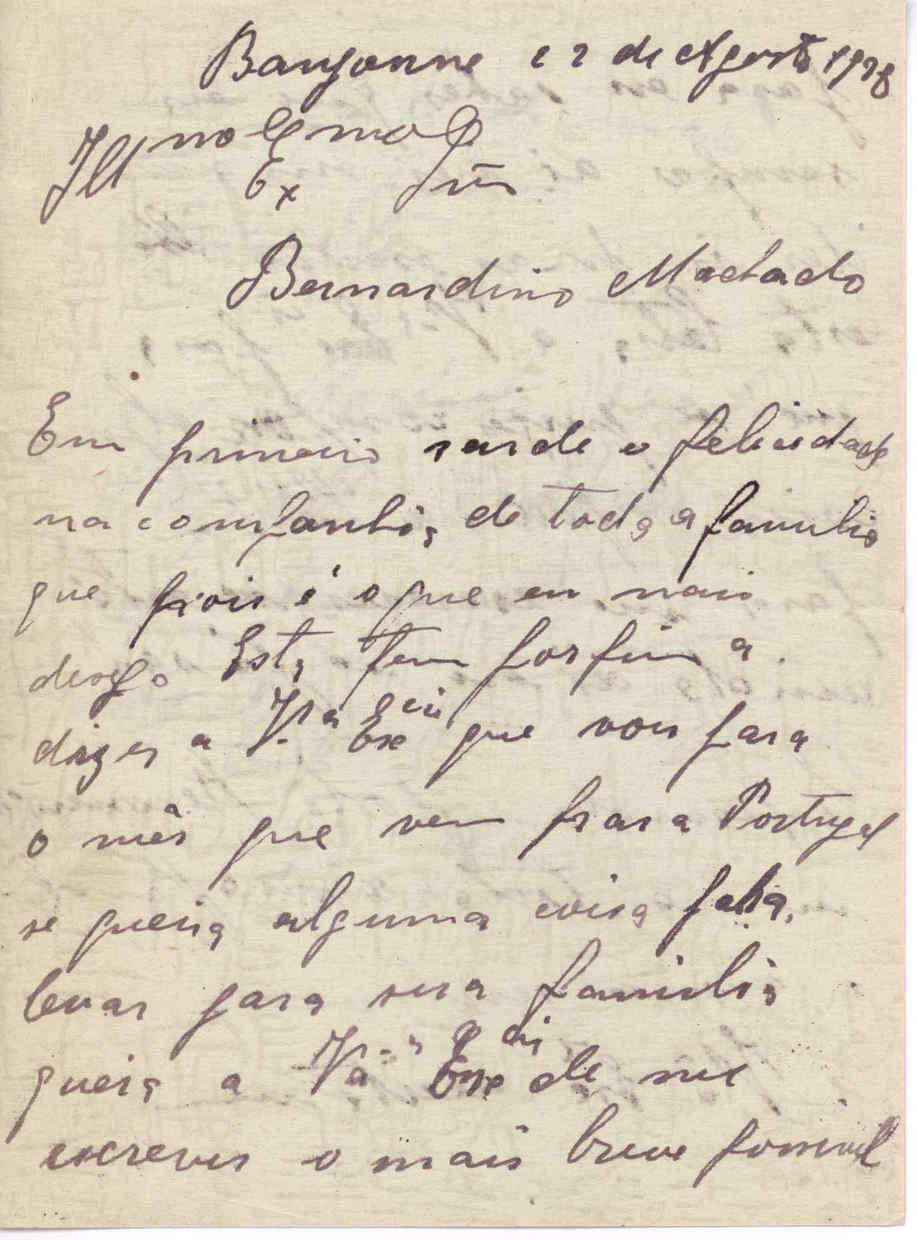 Bayonne 22 de Agosto 1928
Illmo Exmo Snr
Bernardino Machado
Em primeiro saude e felicidade
na companhia de toda a familia
que pois é o que eu mais
desejo Esta tem por fim a
dizer a V.ª Exª que vou para
o mês que vem para Portugal
se queria alguma coisa para
levar para sua familia
queira a Vª Exª de me
escrever o mais breve possivel